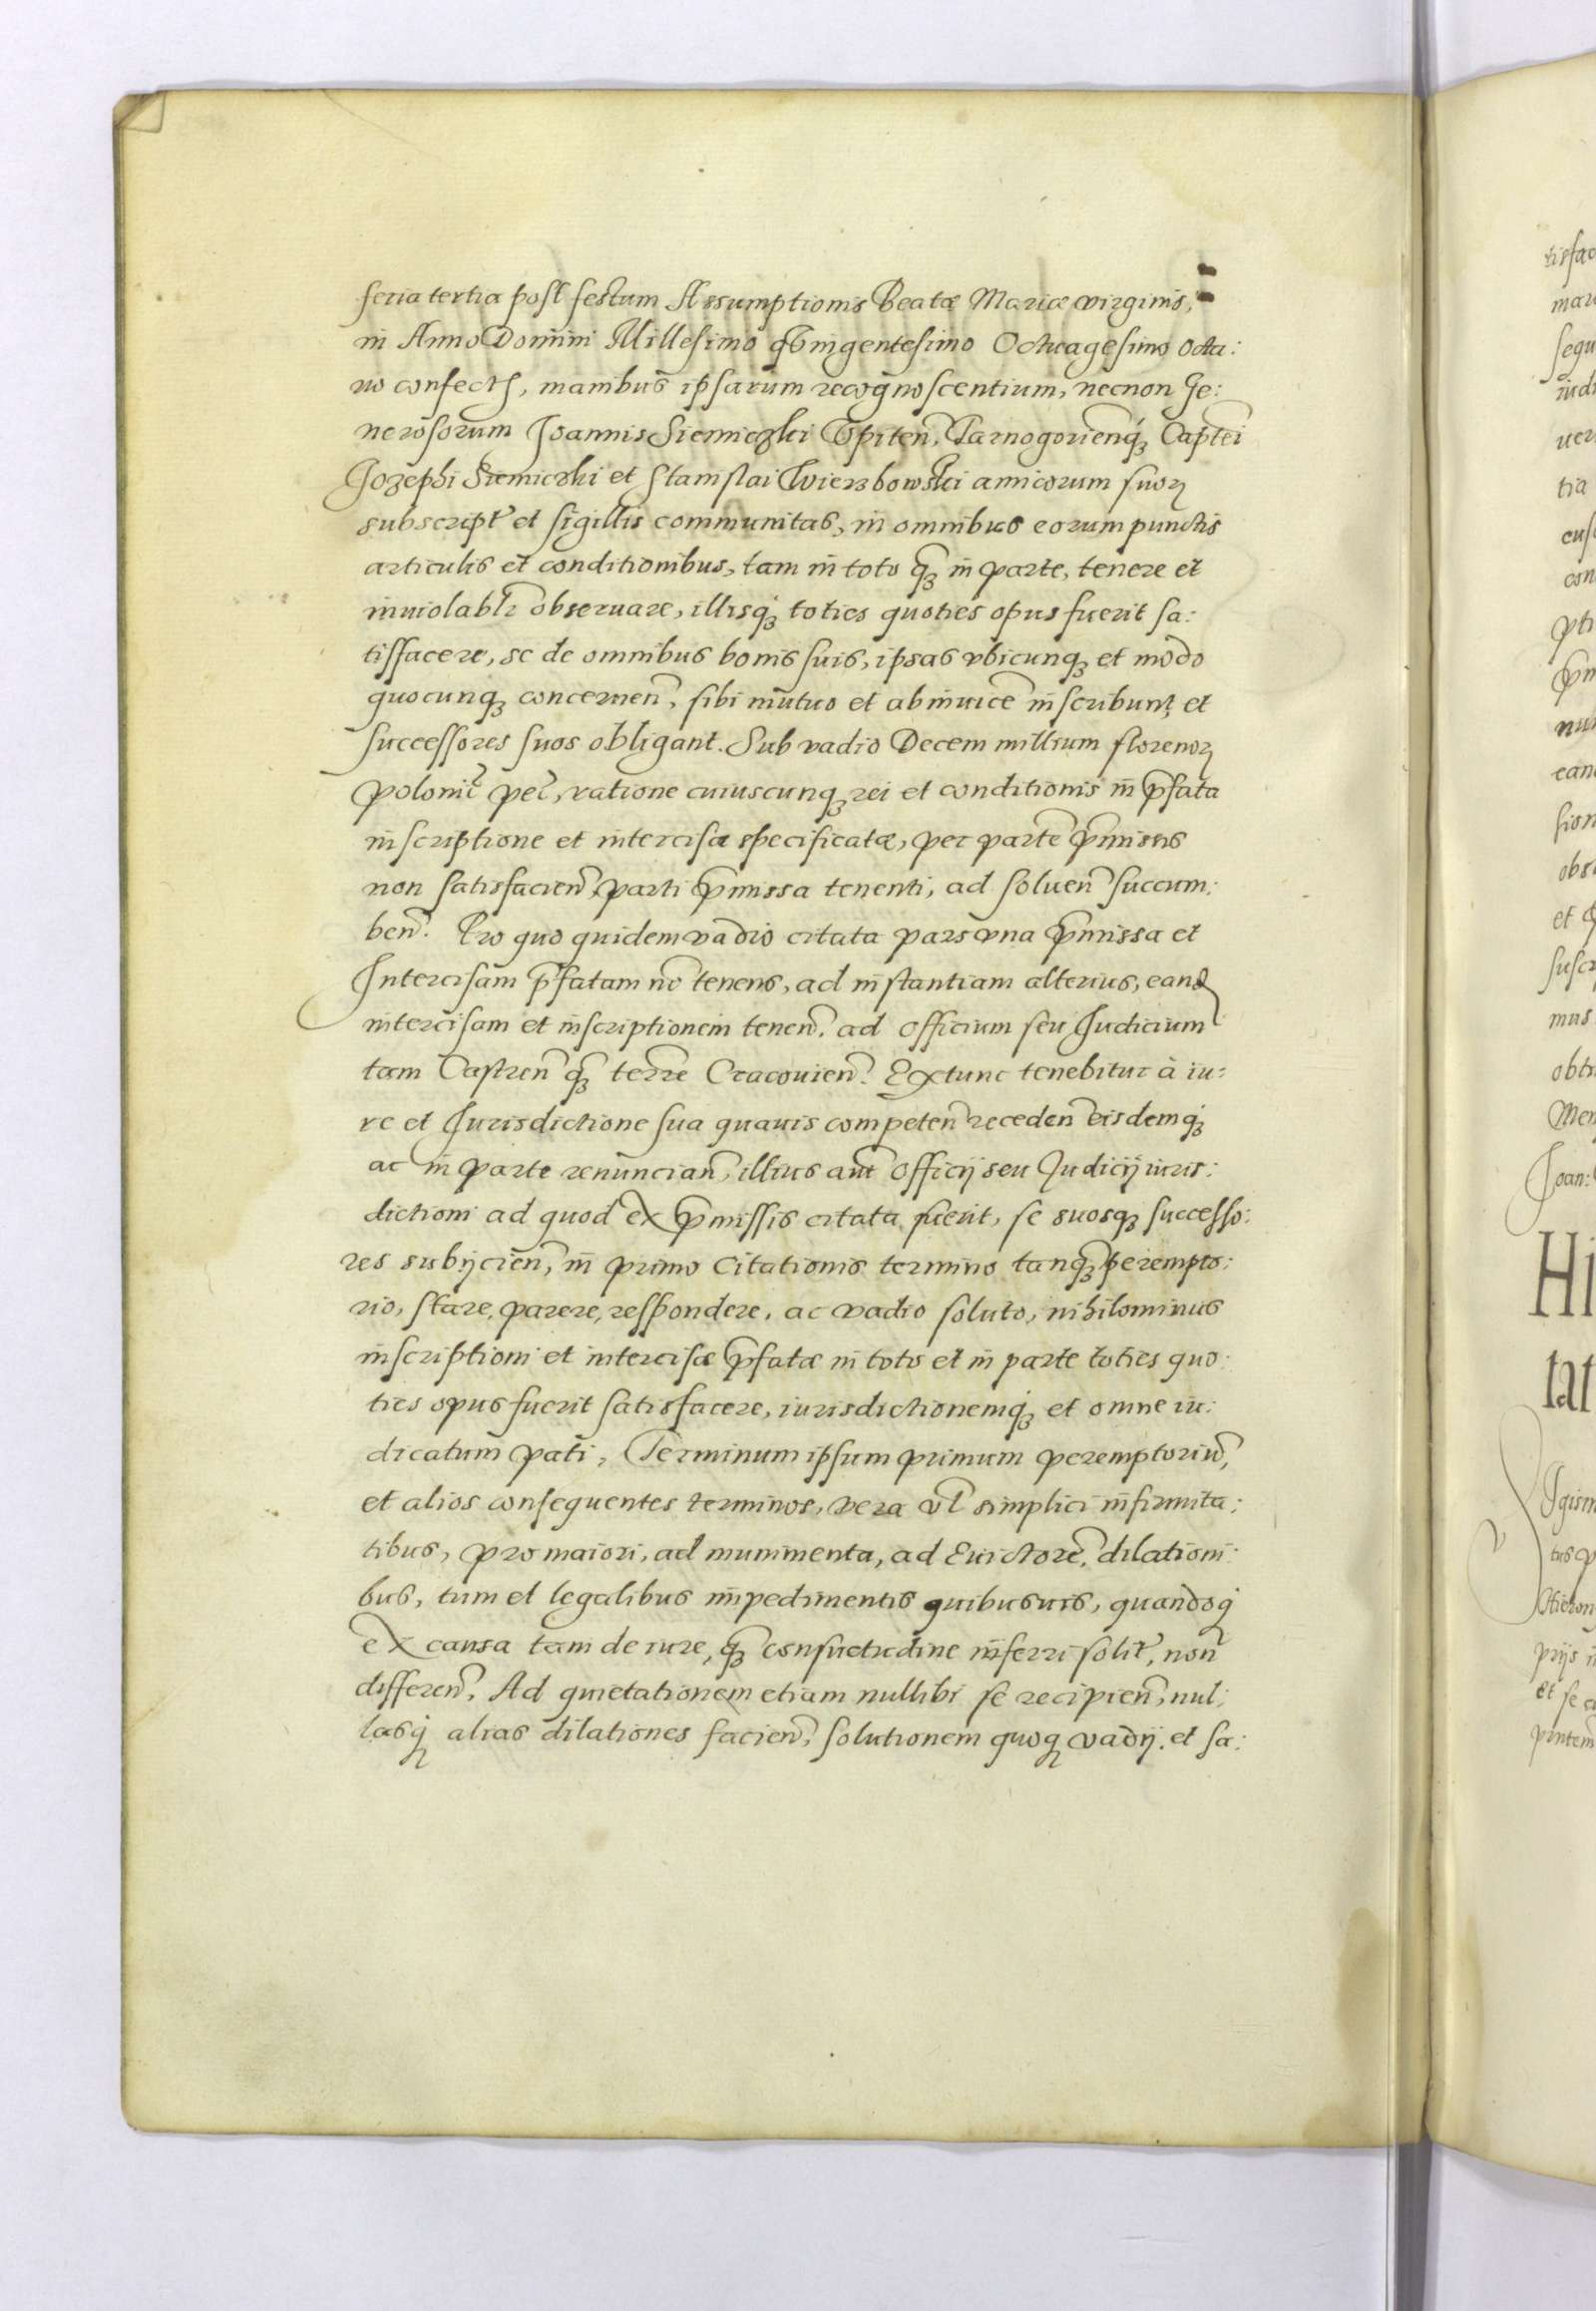 feria tertia post festum Assumptionis Beatæ Mariæ virginis,
in Anno Domini Millesimo qvingentesimo Octuagesimo octa:
uo confectis, manibus ipsarum recognoscentium, necnon Ge:
nerosorum Joannis Siemiczki Opiten̄. Tarnogorienq̧ Captei
Jozephi Siemiczki et Stanislai Wierzbowski amicorum suorꝝ
subscript̃ et sigillis communitas, in omnibus eorum punctis
articulis et conditionibus, tam in toto q̃ȝ in parte, tenere et
inuiolablr̃ obseruare, illisqȝ toties quoties opus fuerit sa:
tisfacere, se de omnibus bonis suis, ipsas vbicunqȝ et modo
quocunqȝ concernen̄, sibi mutuo et abinuicē inscribunt, et
successores suos obligant. Sub vadio Decem millium florenorꝝ
polonic̃ pec̃, ratione cuiuscunqȝ rei et conditionis in p̄fata
inscriptione et intercisa specificatæ, per partē p̄missis
non satisfacien̄ parti p̄missa tenenti, ad soluen̄ succum:
ben̄. Pro quo quidem vadio citata pars vna p̄missa et
Intercisam p̄fatam nō tenens, ad instantiam alterius, eand
intercisam et inscriptionem tenen̄. ad officium seu Judicium
tam Castren̄ q̃ȝ terre Cracouien̄. Extunc tenebitur à iu:
re et Jurisdictione sua quauis competen̄ receden̄ eisdemqȝ
ac in parte renuncian̄, illius aut̄ officij seu Judicij iuris:
dictioni ad quod ex p̄missis citata fuerit, se suosqȝ successo:
res subijcien̄, in primo Citationis termino tanq̃ȝ perempto:
rio, stare, parere, respondere, ac vadio soluto, nihilominus
inscriptioni et intercisæ p̄fatæ in toto et in parte toties quo:
ties opus fuerit satisfacere, iurisdictionemqȝ et omne iu:
dicatum pati, Terminum ipsum primum peremptoriū,
et alios consequentes terminos, vera vl̄ simplici infirmita:
tibus, pro maiori, ad munimenta, ad Euictorē, dilationi:
bus, tum et legalibus impedimentis quibusuis, quandoq̧
ex causa tam de iure, q̃ȝ consuetudine inferri solit̃, non
differen̄. Ad quietationem etiam nullibi se recipien̄, nul:
lasq̧ alias dilationes facien̄, solutionem quoq̧ vadij. et sa:
Hi
tat